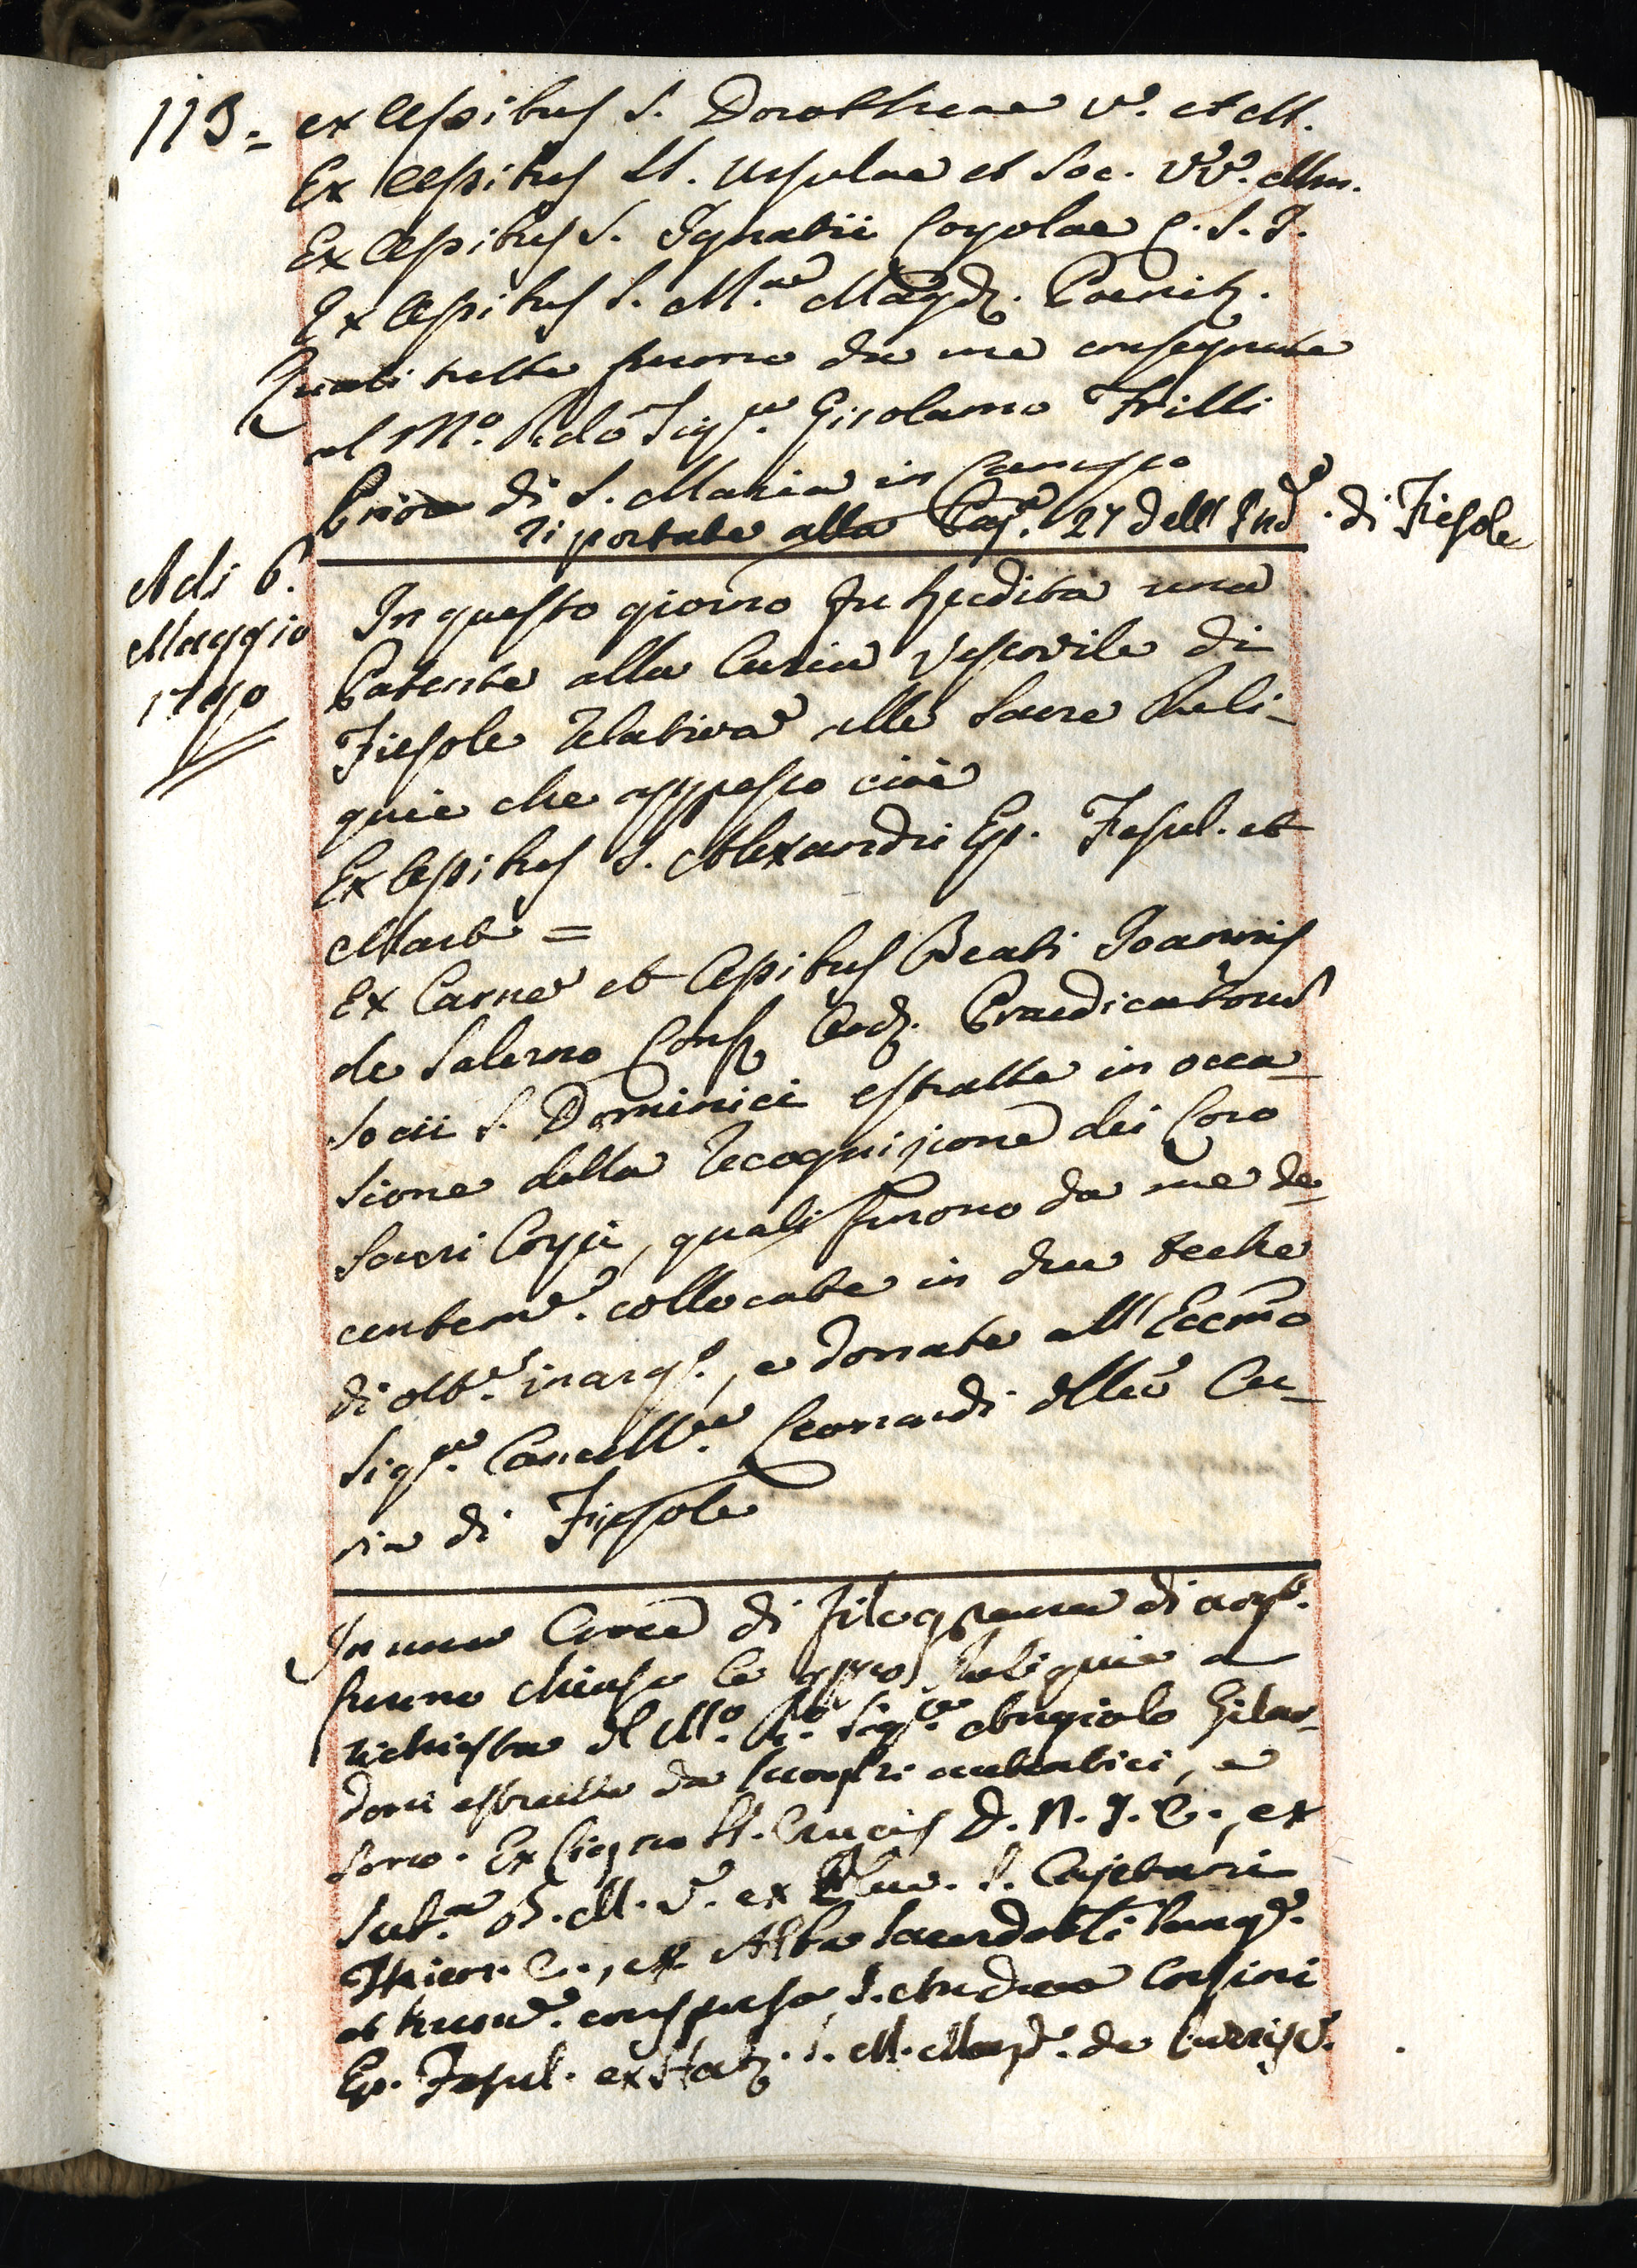 113 =
ex Ossibus S. Dorotheae V. et M.
Ex Ossibus SS. Ursulae et Soc. VV. Mm.
Ex Ossibus S. Ignatii Loyolae C. S. I.
Ex Ossibus S. M.ae Magd. Poenit.
Quali tutte furono da me consegnate
al M.o Rdo Sigr.e Girolamo Frilli
Priore di S. Maria in Campo
riportate alla Pag.a 27 dell' Ind.e di Fiesole
Adi 6.
Maggio
1790
In questo giorno fu spedita una
Patente alla Curia Vescovile di
Fiesole relativa alle Sacre Reli-
quie che appresso cioè
Ex Ossibus S. Alexandri Ep. Fesul. et
Mart =
Ex Carne et Ossibus Beati Joannis
de Salerno Conf. Ord. Praedicatorum
Socii S. Dominici estratte in occa-
sione della recognizione dei Loro
Sacri Corpi, quali furono da me de-
centem.e collocate in due teche
di ott.e inarg.o, e donate all' Eccmo
Sigr.e Cancell.re Leonardi della Cu-
ria di Fiesole
In una Croce di filograna di arg.o
furono chiuse le appo Reliquie a
richiesta del M.o R.o Sigr.e Angiolo Gilar-
doni estratte da suoi autentici, e
sono. Ex Ligno SS. Crucis D. N. J. C., ex
B. M. V. ex S. Cajetani
C., ex Alba Sacerdot.li Sang.e
et conspersa S. Andreae Corsini
Ep. Fesul. ex S. M. Magd. de